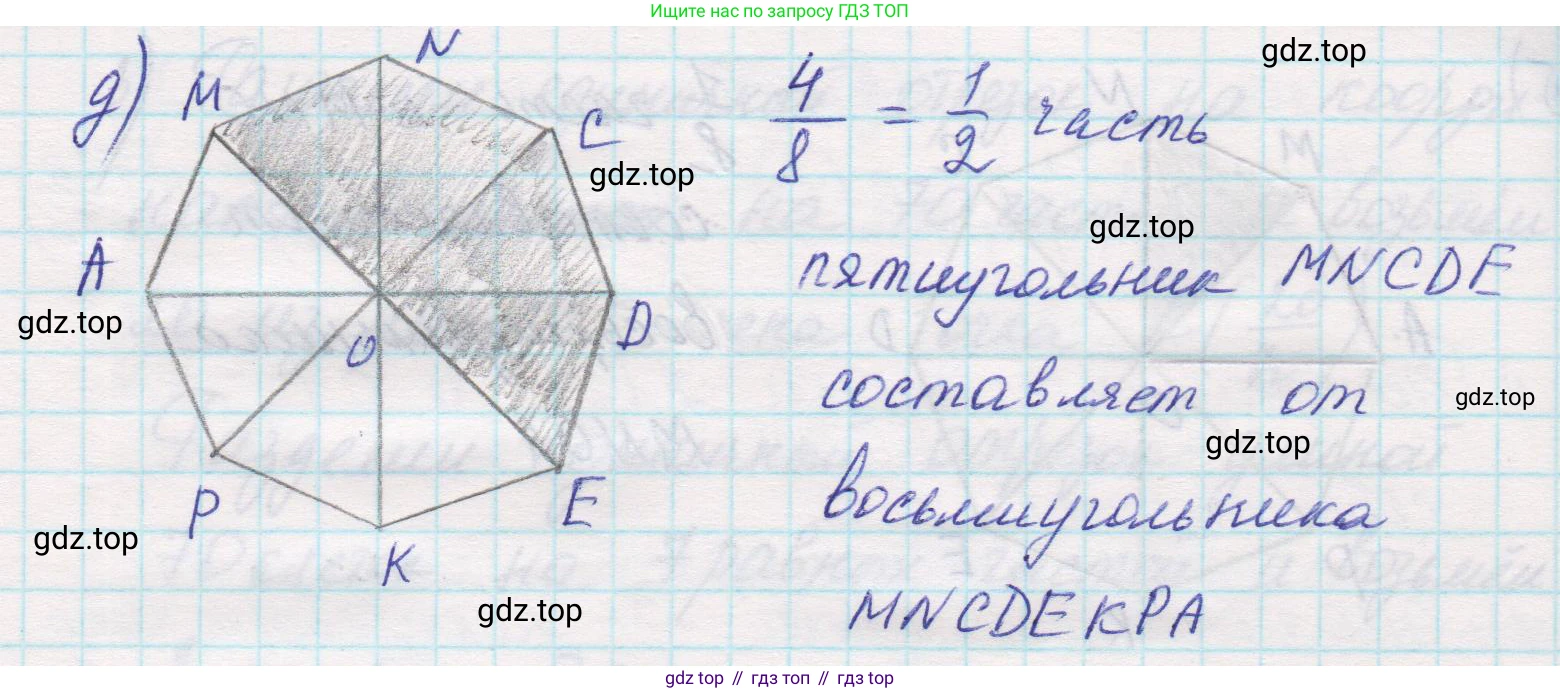 Ищите нас по запросу ГДЗ ТОП
д)
M
N
C
A
O
D
P
K
E
4/8 = 1/2 часть
пятиугольник MNCDE
составляет от
восьмиугольника
MNCDEKPA
gdz.top
gdz.top
gdz.top
gdz.top
gdz.top
gdz.top
gdz.top
gdz.top
gdz top // гдз топ // gdz top